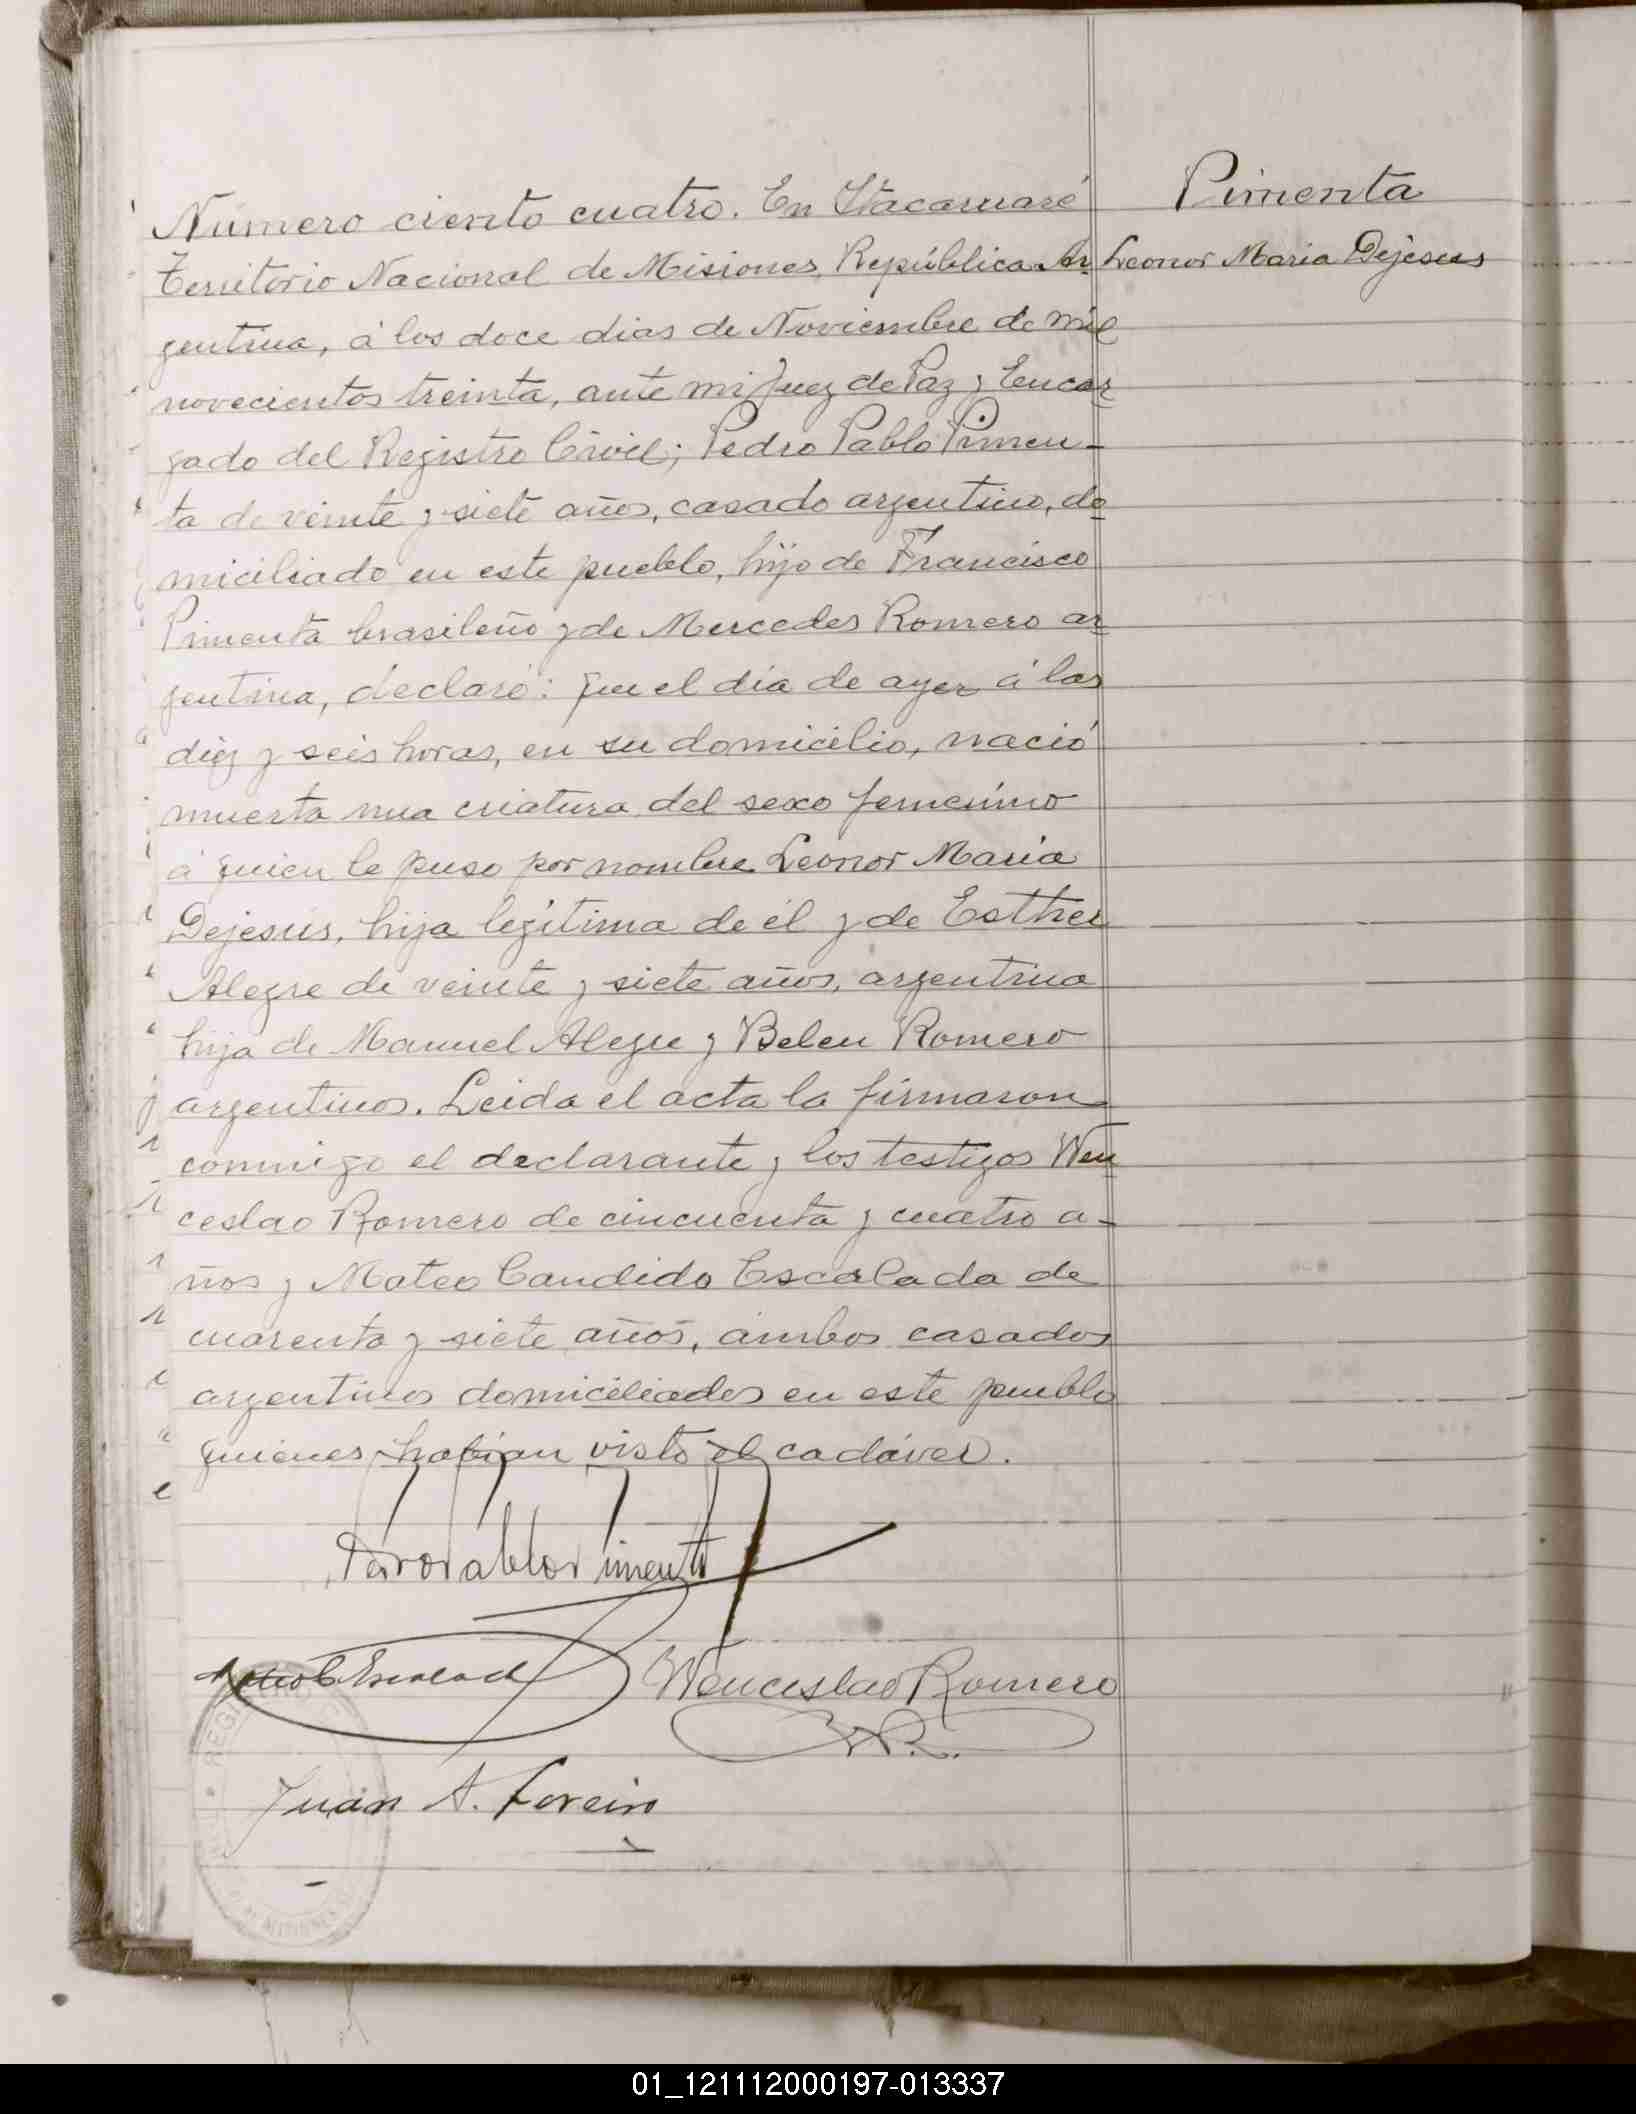 Pimenta
Leonor Maria Dejesus
Número ciento cuatro. En Itacaruaré
Territorio Nacional de Misiones República Ar
gentina, á los doce dias de Noviembre de mil
novecientos treinta, ante mi Juez de Paz y Encar
gado del Registro Civil; Pedro Pablo Pimen-
ta de veinte y siete años, casado argentino, do
miciliado en este pueblo, hijo de Francisco
Pimenta brasileño y de Mercedes Romero ar
gentina, declaró: que el dia de ayer á las
diez y seis horas, en su domicilio, nació
muerta una criatura del sexo femenino
á quien le puso por nombre Leonor Maria
Dejesús, hija legítima de él y de Esther
Alegre de veinte y siete años, argentina
hija de Manuel Alegre y Belen Romero
argentinos. Leida el acta la firmaron
conmigo el declarante y los testigos Wen
ceslao Romero de cincuenta y cuatro a-
ños y Mateo Candido Escalada de
cuarenta y siete años, ambos casados
argentinos domiciliados en este pueblo
quienes habian visto el cadáver.
Wenceslao Romero
W.R.
Juan A.
01_121112000197-013337